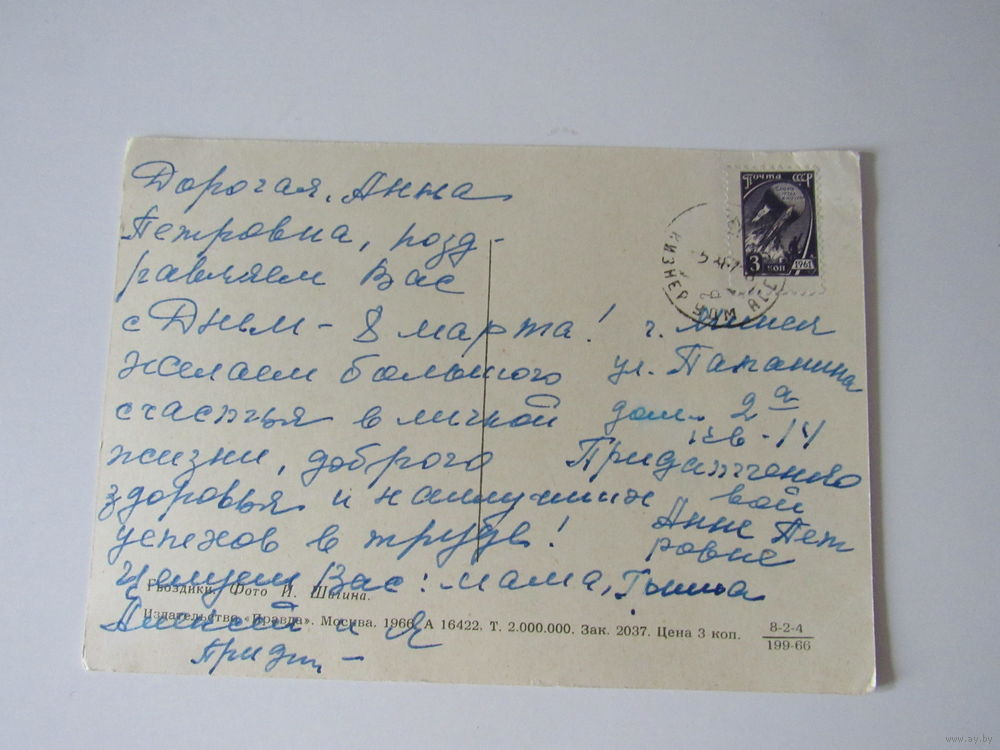 Дорогая, Анна
Петровна, позд-
равляем Вас
с Днем - 8 марта!
желаем большого
счастья в личной
жизни, доброго
здоровья и наилучших
успехов в труде!
Целуем Вас: мама,
Алексей и я
Почта СССР
3 коп 1961
КИЗНЕР
г.
ул. Папанина
дом. 2 а
кв - 14
Анне Пет
ровне
Гвоздики. Фото И. Шагина.
Издательство «Правда». Москва. 1966. А 16422. Т. 2.000.000. Зак. 2037. Цена 3 коп.
8-2-4
199-66
www.ay.by